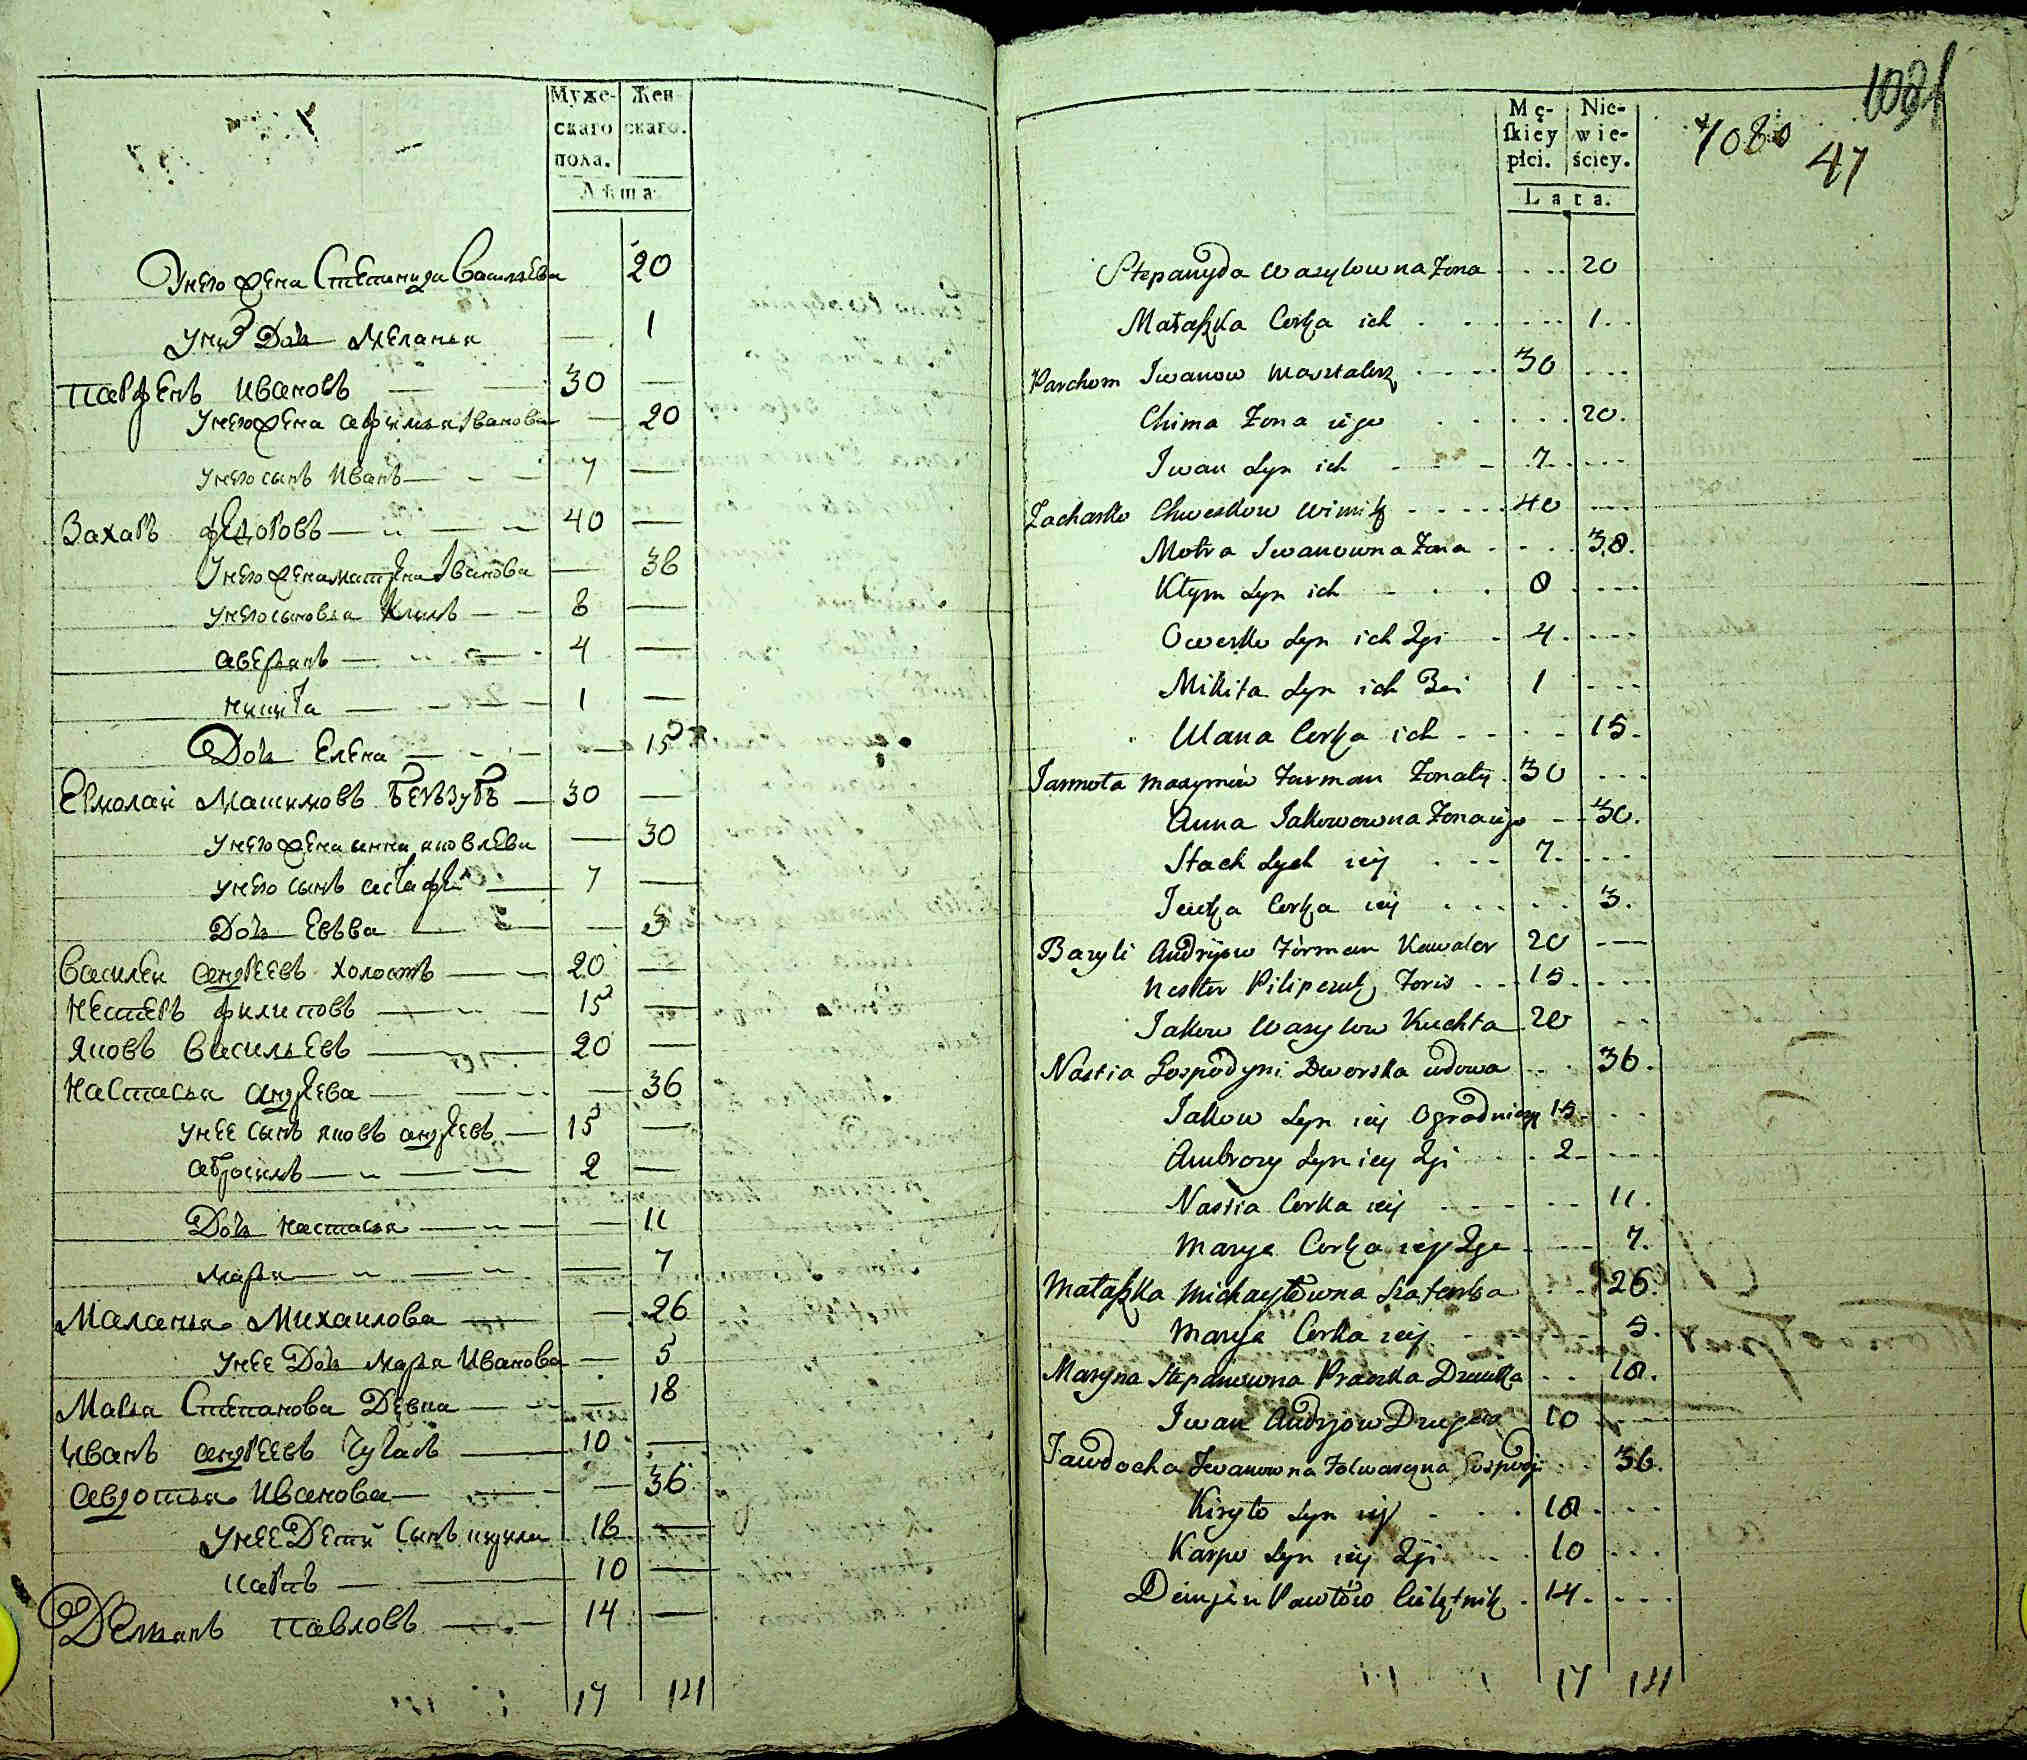 Муже-
скаго
пола.
Жен
скаго.
Лѣта.
Унего жена Степанида Василева 20
Унихъ Дочь Меланья — 1
Парфенъ Ивановъ — 30 —
Унего жена Афимья Иванова — 20
Унего сынъ Иванъ — 7 —
Захаръ Федоровъ — 40 —
Унего жена матрена Иванова — 38
Унего сыновья Климъ — 8 —
Аверьянъ — 4 —
Никита — 1 —
Дочь Елена — 15
Ермолай Максимовъ — 30 —
Унего жена анна яковлева — 30
Унего сынъ астафей — 7 —
Дочь Евва — 3
Василей андреевъ холостъ — 20 —
Нестеръ филиповъ — 15 —
Яковъ Васильевъ — 20 —
Настасья андреева — 36
Унее сынъ яковъ андреевъ — 15 —
Абросимъ — 2 —
Дочь настасья — 11
марья — 7
Маланья Михаилова — 26
Унее Дочь марья Иванова — 5
Марья Степанова Девка — 18
Иванъ андреевъ — 10 —
Авдотья Иванова — 36
Унее Дети Сынъ кирила 18 —
карпъ — 10 —
Демьянъ Павловъ — 14 —
17 141
Mę-
ſkiey
płci.
Nie-
wie-
ściey.
Lata.
1081
1080
47
Stepanyda Wasylowna Zona . . . . 20
Małaszka Corka ich . . . . 1 . .
Parchom Iwanow Masztalerz . . . . 30 . . .
Chima Zona iego . . . . 20.
Iwan Syn ich . . . 7 . . . .
Zacharko Chweskow Winnik . . . . . 40 . . .
Motra Iwanowna Zona . . . . 38.
Kłym Syn ich . . . 8 . . . .
Owerko Syn ich 2gi . 4 . . . .
Mikita Syn ich 3ci 1 . . .
Ulana Corka ich . . . . 15.
Jarmoła Maxymów Furman Zonaty . 30 . . .
Anna Jakowowna Zona iego . . 30.
Stach Syn iey . . . 7. . . .
Jewka Corka iey . . . . . . 3.
Bazyli Andryiow Fórman Kawaler 20 . . .
Nester Pilipczuk Foris . . . 15 . . . .
Jakow Wasylow Kuchta 20 . .
Nastia Gospodyni Dworska wdowa . . . 36.
Jakow Syn iey Ogrodniczy 15. . .
Ambrozy Syn iey 2gi . . . . 2 . . . .
Nastia Corka iey . . . . . . 11.
Marya Corka iey 2ga . . . . 7.
Małaszka Michayłowna Szafarka . . . 26.
Marya Corka iey . . . . . 5.
Maryna Stepanowna Praczka Dziewka . . 18.
Iwan Andryow 10 . . .
Jawdocha Iwanowna Folwarczna Gospodyni . . 36.
Kiryło Syn iey . . . 18 . . . .
Karpo Syn iey 2gi . . . 10 . . .
Demjan Pawłów Cielętnik . 14. . . . .
17 141